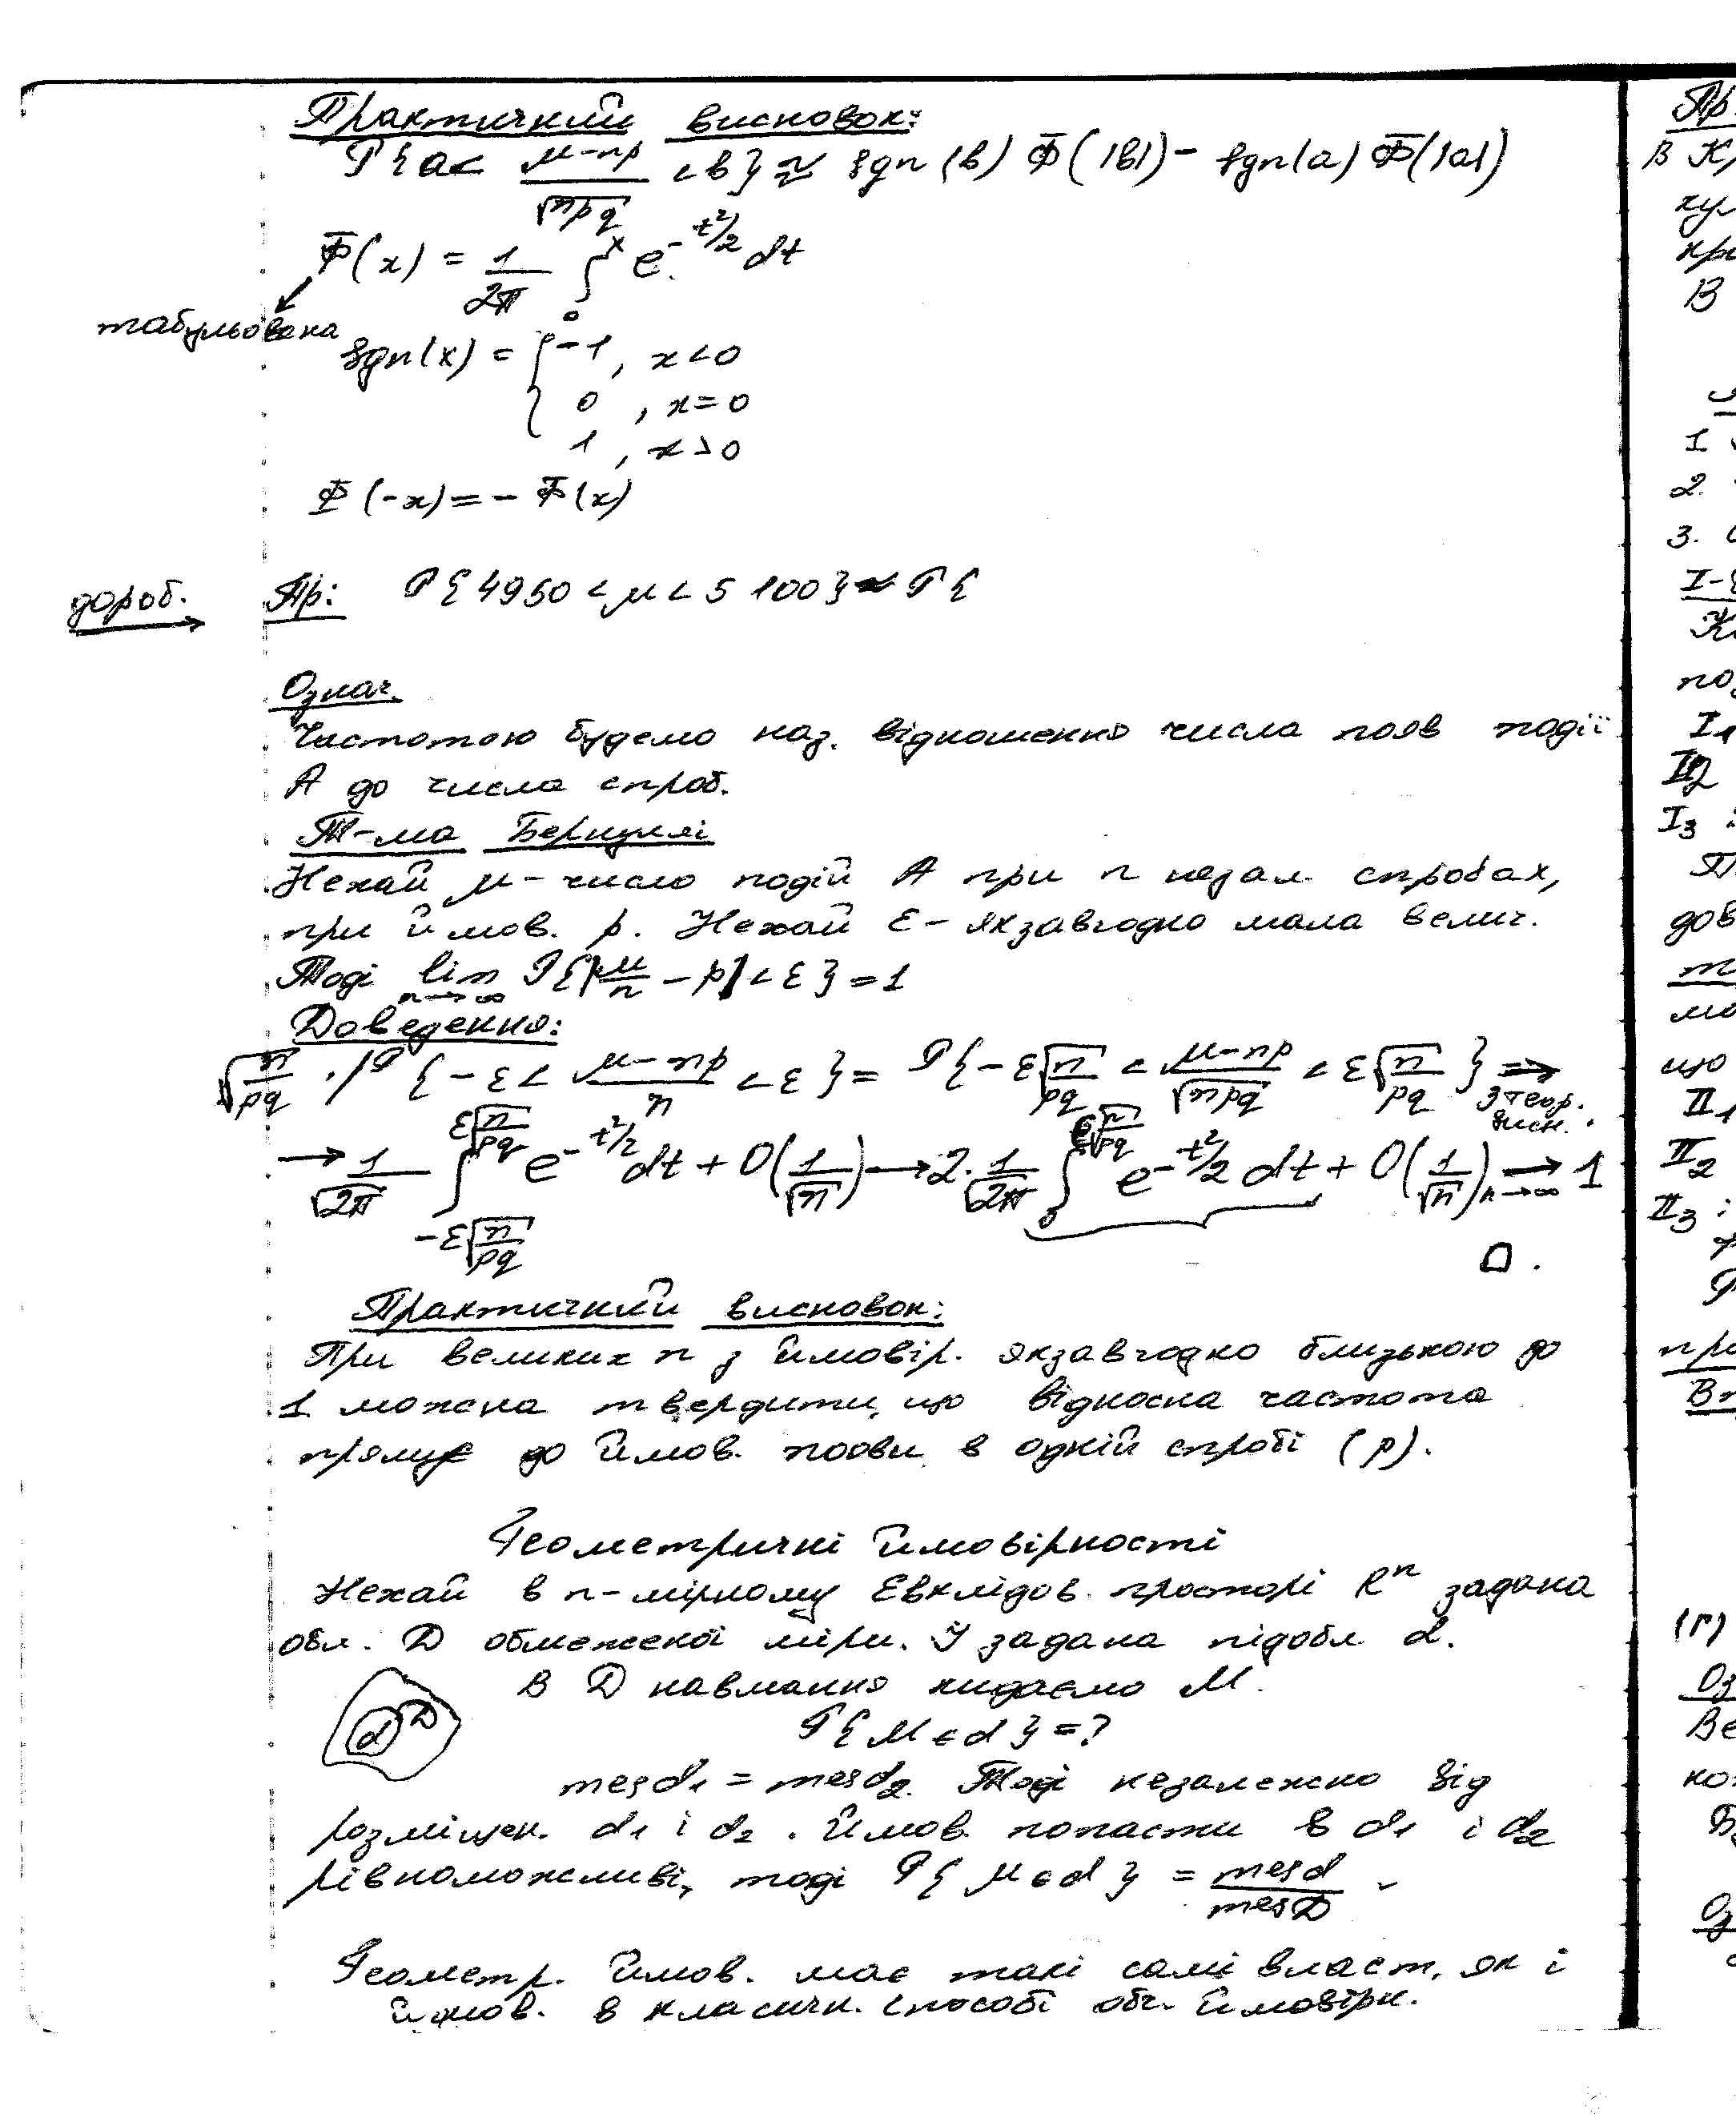 Практичний висновок:
P{a< μ-np/√npq <b}≈ sgn(b) Φ(|b|) - sgn(a) Φ(|a|)
Φ(x) = 1/2π ∫₀ˣ e^(-t²/2) dt
табульована
sgn(x) = { -1, x<0
0, x=0
1, x>0
Φ(-x) = - Φ(x)
дороб. Пр: P{4950 < μ < 5100} ≈ P{
Означ.
Частотою будемо наз. відношення числа появ події
А до числа спроб.
Т-ма Бернуллі
Нехай μ - число подій А при n незал. спробах,
при ймов. p. Нехай ε - якзавгодно мала велич.
Тоді lim n→∞ P{|μ/n - p| < ε} = 1
Доведення:
√(n/pq) · / P{-ε < μ-np/n < ε} = P{-ε√(n/pq) < μ-np/√npq < ε√(n/pq)} ⇒ з теор.
→ 1/√2π ∫ from -ε√(n/pq) to ε√(n/pq) e^(-t²/2) dt + O(1/√n) → 2· 1/√2π ∫ from 0 to ε√(n/pq) e^(-t²/2) dt + O(1/√n) → n→∞ 1
□.
Практичний висновок:
При великих n з ймовір. якзавгодно близькою до
1 можна твердити, що відносна частота
прямує до ймов. появи в одній спробі (p).
Геометричні ймовірності
Нехай в n-мірному Евклідов. просторі Rⁿ задана
обл. D обмеженої міри. І задана підобл d.
В D навмання кидаємо M.
d D
P{M∈d} = ?
mes d₁ = mes d₂. Тоді незалежно від
розміщен. d₁ і d₂. Ймов. попасти в d₁ і d₂
рівноможливі, тоді P{M∈d} = mes d/mes D
Геометр. ймов. має такі самі власт. як і
ймов. в класичн. способі обч. ймовірн.
Пр.
В
В
1
2.
3.
I-
I₁
I₂
I₃
дов
що
II₁
II₂
II₃ :
(Г)
Оз
Ве
Оз